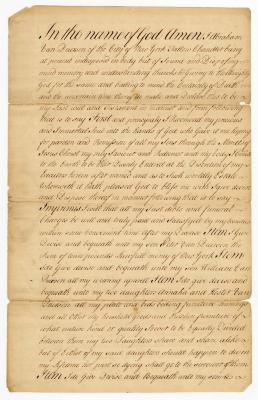 In the name of God Amen, I Abraham
Van Deursen of the City of New York Tallow Chandler being
at present indisposed in body but of Sound and Disposing
mind memory and understanding thanks be given to the Almighty
God for the same and calling to mind the Certainty of Death
and the uncertain time thereof do make and Publish this to be
my Last will and Testament in manner and form following
that is to say First and principally I bequeath my precious
and Immortal Soul into the hands of God who gave it me hoping
for pardon and Remission of all my Sins through the Merits of
Jesus Christ my only Saviour and Redeemer and my body I commit
to the Earth to be there Decently Interred at the Discretion of my
Executors herein after named and as to Such worldly Estate
wherewith it hath pleased God to bless me with I give devise
and Dispose thereof in manner following that is to say
Imprimis I will that all my Just debts and funeral
Charges be will and truly paid and Satisfyed by my Executors
within some convenient time after my Decease Item I give
Devise and bequeath unto my Son Peter Van Deursen the
Sum of pounds Currant money of New York Item
I do Give devise and bequeath unto my Son William Van
Deursen all my wearing apparel Item I do give devise and
bequeath unto my two daughters and Van
Deursen all my plate and beds bedding furniture
and all other my household goods and kitchen furniture of
what nature kind or quality Soever to be Equally Devided
between them my two Daughters Share and Share alike
but if Either of my said daughters should happen to die in
my lifetime her part so dying shall go to the survivor of them
Item I do Give Devise and Bequeath unto my